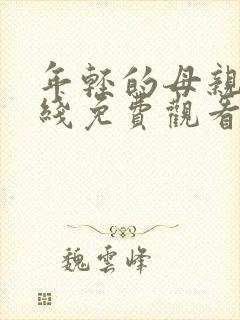 年轻的母亲
綫免費觀看
魏雲峰